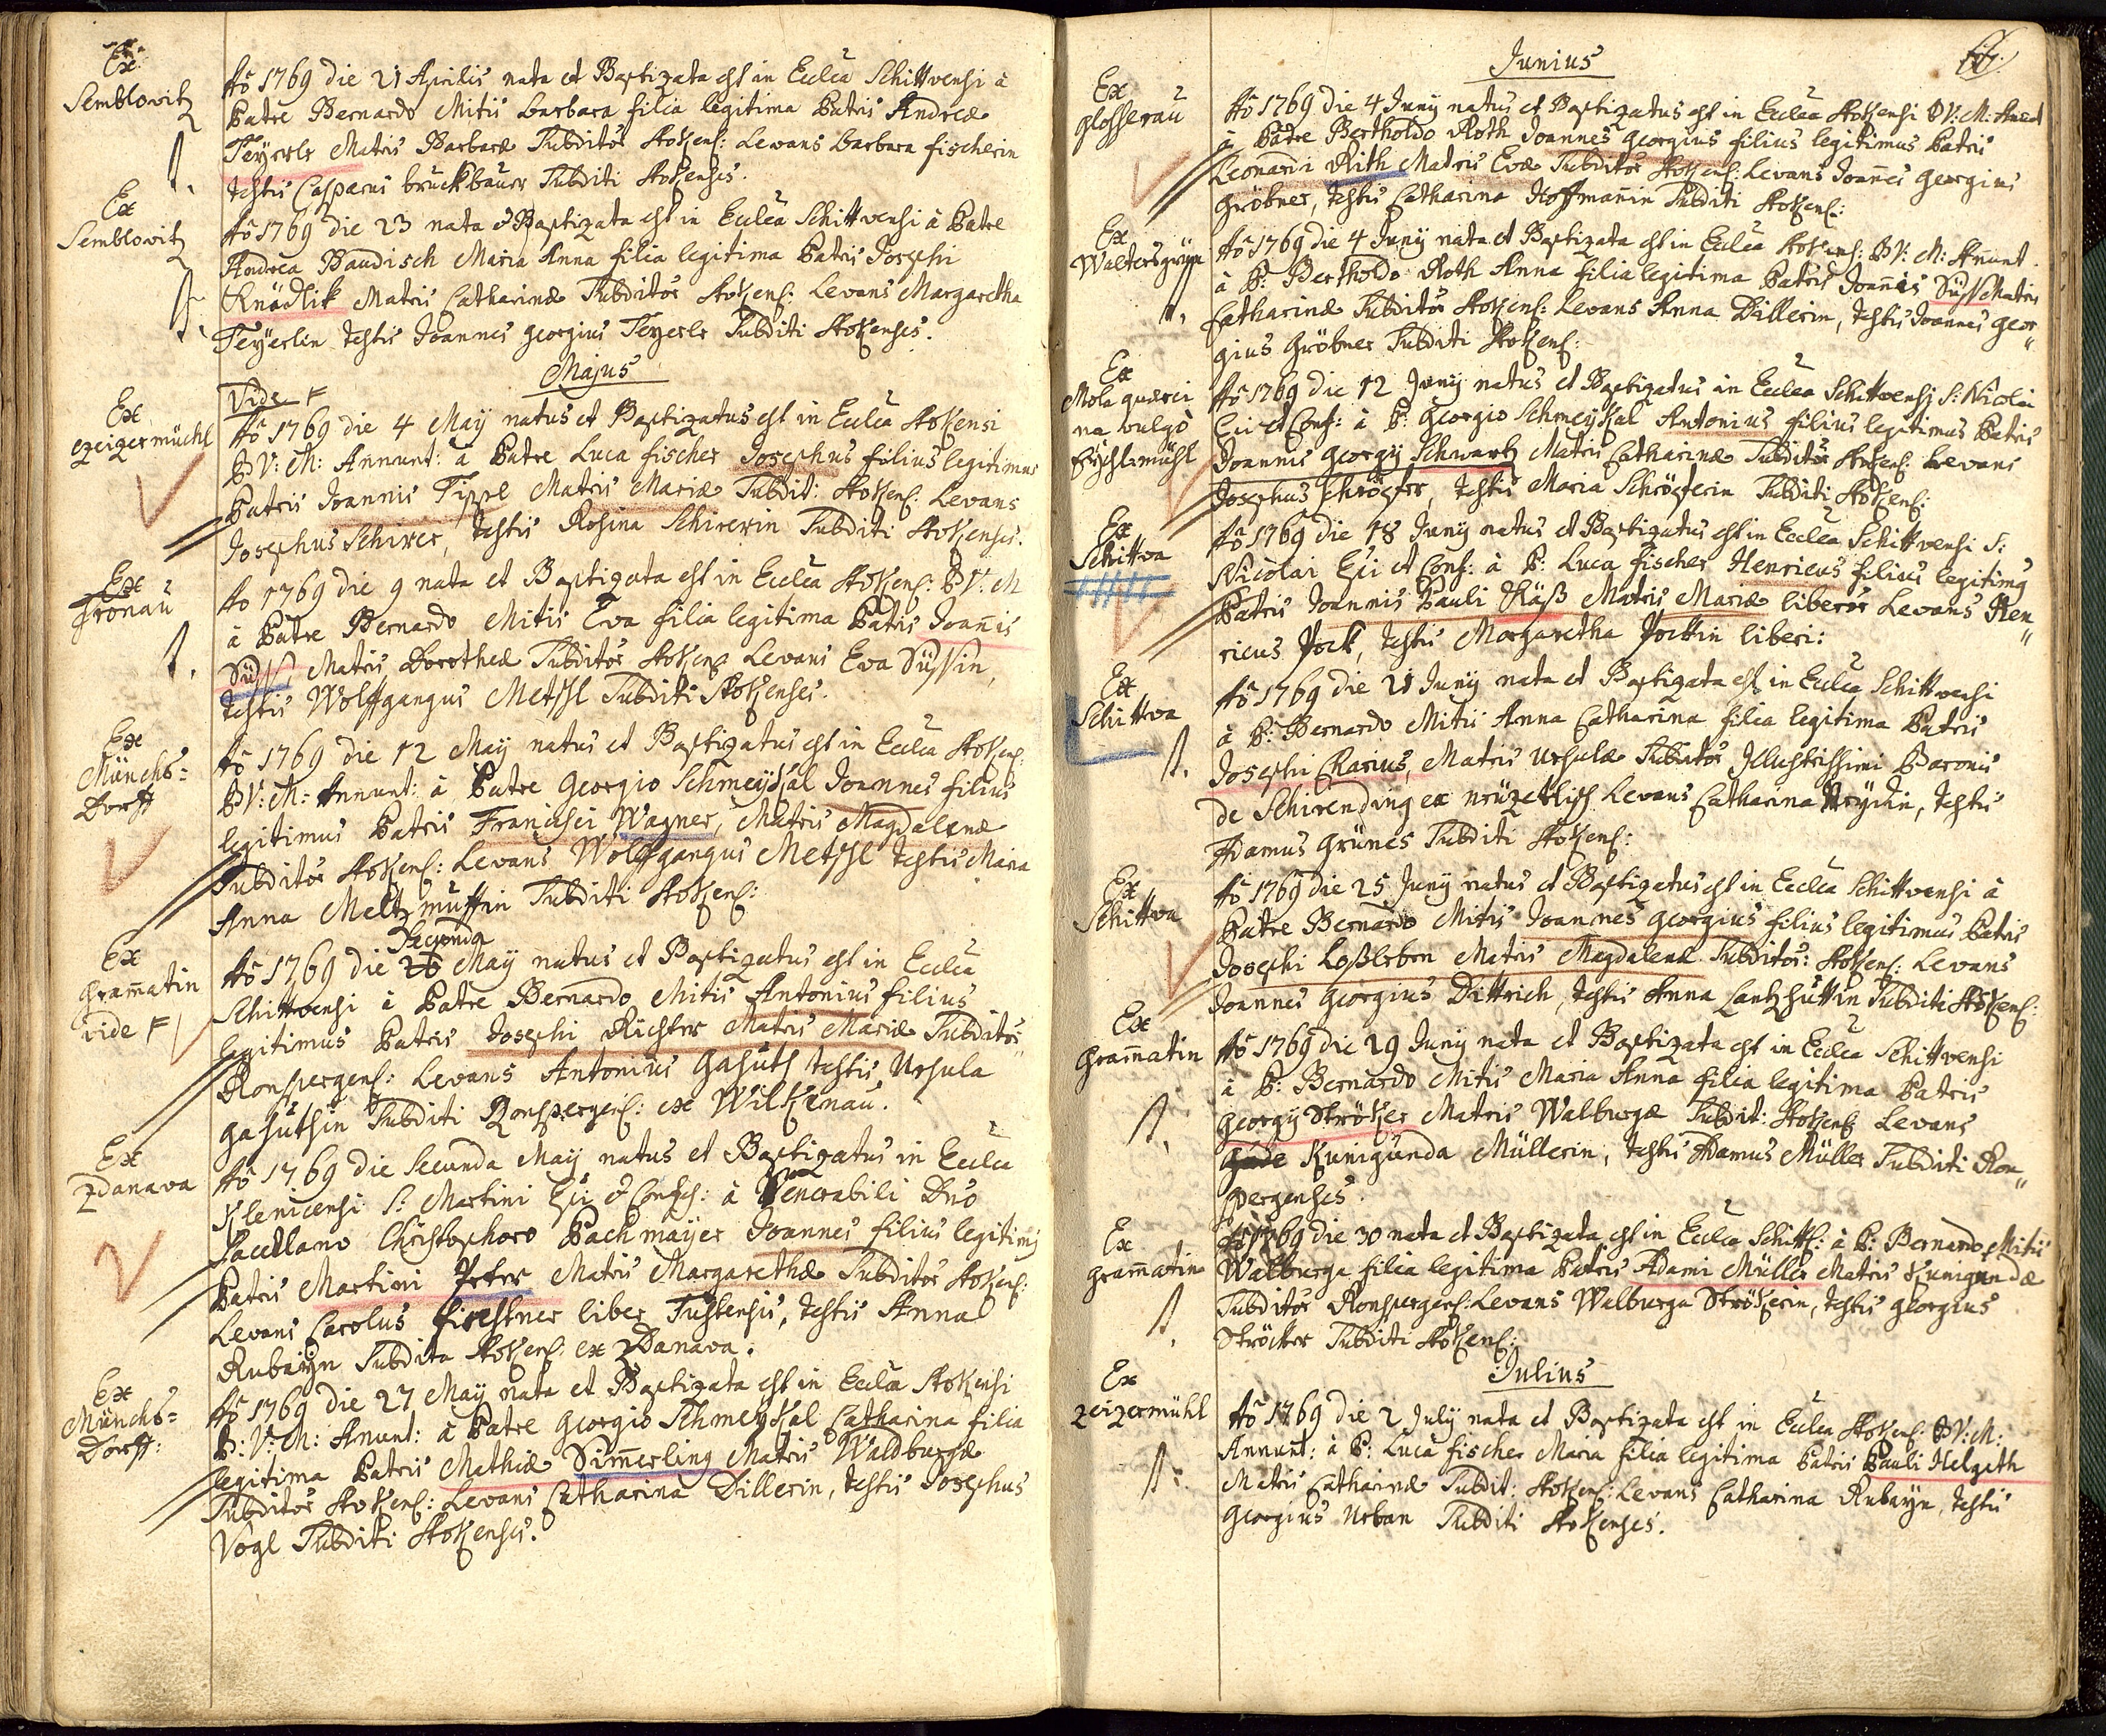 Ex
Semblovitz
Aõ 1769 die 21 Aprilis nata et Baptizata est in Ecclea Schittvensi à
Patre Bernardo Mitis barbara filia legitima Patris Andreæ
Teyerls Matris Barbaræ Subditor Stokens: Levans barbara fischerin
testis Casparus bruckbauer Subditi Stokenses.
†.
Ex
Semblovitz
Aõ 1769 die 23 nata & Baptizata est in Ecclea Schittvensi à Patre
Andrea Baudisch Maria Anna filia legitima Patris Josephi
Knädlik Matris Catharinæ Subditor Stokens: Levans Margaretha
Teyerlin testis Joannes georgius Teyerls Subditi Stokenses.
†.
Majus
Vide F
Ex
czeigermühl
Aõ 1769 die 4 May natus et Baptizatus est in Ecclea Stokensi
B V: M: Annunt: à Patre Luca fischer Josephus filius legitimus
Patris Joannis Tippl Matris Mariæ Subdit: Stokens: Levans
Josephus Schirer, testis Rosina Schirerin Subditi Stokenses.
Ex
Fronau
Ao 1769 die 9 nata et Baptizata est in Ecclea Stokens: B V: M
à Patre Bernardo Mitis Eva filia legitima Patris Joannis
Süss, Matris Dorotheæ Subditor Stokens Levans Eva Süssin,
testis Wolffgangus Metssl Subditi Stokenses.
†.
Ex
Münchs=
Dorff
Aõ 1769 die 12 May natus et Baptizatus est in Ecclea Stokens:
B V: M: Annunt: à Patre Georgio Schmeykal Joannes filius
legitimus Patris Francisci Wagner, Matris Magdalenæ
Subditor Stokens: Levans Wolffgangus Metssl testis Maria
Anna Meltzmüssin Subditi Stokens:
Secunda
Ex
Gramatin
vide F
Aõ 1769 die 26 May natus et Baptizatus est in Ecclea
Schittvensi à Patre Bernardo Mitis Antonius filius
legitimus Patris Josephi Richter Matris Mariæ Subditor
Ronspergens: Levans Antonius Gahuts testis Ursula
Gahutsin Subditi Ronspergens: ex Wilkenau.
Ex
Zdanava
Aõ 1769 die Secunda May natus et Baptizatus in Ecclea
Klenicensi S: Martini Epi & Confes: à Venerabili Dno
Sacellano Christophoro Bachmayer Joannes filius legitimus
Patris Martini Peter Matris Margarethæ Subditor Stokens:
Levans Carolus Firchtner liber Tustensis, testis Anna
Rubayin Subdita Stokens: ex Zdanava.
Ex
Münchs=
Dorff:
Aõ 1769 die 27 May nata et Baptizata est in Ecclea Stokensi
B: V: M: Anunt: à Patre Georgio Schmeykal Catharina filia
legitima Patris Mathiæ Simerling Matris Waldburgæ
Subditor Stokens: Levans Catharina Dillerin, testis Josephus
Vogl Subditi Stokenses.
Junius
Ex
Glosserau
Aõ 1769 die 4 Juny natus et Baptizatus est in Ecclea Stokensi B V: M: Anunt
à Patre Bertholdo Roth Joannes Georgius filius legitimus Patris
Leonardi Rith Matris Evæ Subditor Stokens: Levans Joannes Georgius
Gröbner, testis Catharina Hoffmanin Subditi Stokens:
Ex
Waltersgrün
Aõ 1769 die 4 Juny nata et Baptizata est in Ecclea Stokens: B V: M: Anunt.
à P: Bertholdo Roth Anna filia legitima Patris Joannis Süss Matris
Catharinæ Subditor Stokens: Levans Anna Dillerin, testis Joannes Geor„
gius Gröbner Subditi Stokens:
†.
Ex
Mola querci
na vulgò
Eychlmühl
Aõ 1769 die 12 Juny natus et Baptizatus in Ecclea Schittvensj S: Nicolai
Epi et Conf: à P: Georgio Schmeykal Antonius filius legitimus Patris
Joannis Georgij Schwartz Matris Catharinæ Subditor Stokens: Levans
Josephus Schröpfer, testis Maria Schröpferin Subditi Stokens:
Ex
Schittva
Aõ 1769 die 18 Juny natus et Baptizatus est in Ecclea Schittvensi S:
Nicolai Epi et Conf: à P: Luca fischer Henricus filius legitimus
Patris Joannis Pauli Käß Matris Mariæ liberor Levans Hen„
ricus Pock, testis Margaretha Pockin liberi:
Ex
Schittva
Aõ 1769 die 21 Juny nata et Baptizata est in Ecclea Schittvensi
à P: Bernardo Mitis Anna Catharina filia legitima Patris
Josephi Rarius, Matris Ursulæ Subditor Illustrissimi Baronis
de Schirending ex Levans Catharina, testis
Adamus Grünes Subditi Stokens:
†.
Ex
Schittva
Aõ 1769 die 25 Juny natus et Baptizatus est in Ecclea Schittvensi à
Patre Bernardo Mitis Joannes Georgius filius legitimus Patris
Josephi Loßleben Matris Magdalenæ Subditor: Stokens: Levans
Joannes Georgius Dittrich, testis Anna Lantzhüttin Subditi Stokens:
Ex
Gramatin
Aõ 1769 die 29 Juny nata et Baptizata est in Ecclea Schittvensi
à P: Bernardo Mitis Maria Anna filia legitima Patris
Georgij Ströker Matris Walburgæ Subdit: Stokens Levans
Kunigunda Müllerin, testis Adamus Müller Subditi Ron„
spergenses.
†.
Ex
Gramatin
Aõ 1769 die 30 nata et Baptizata est in Ecclea Schitts: à P: Bernardo Mitis
Walburga filia legitima Patris Adami Müller Matris Kunigundæ
Subditor Ronspergens: Levans Walburga Strökerin, testis Georgius
Ströcker Subditi Stokens:
†.
Julius
Ex
Zeigermühl
Aõ 1769 die 2 July nata et Baptizata est in Ecclea Stokens: B V: M:
Annunt: à P: Luca fischer Maria filia legitima Patris Pauli Helgeth
Matris Catharinæ Subdit: Stokens: Levans Catharina Rubayn, testis
Georgius Urban Subditi Stokenses.
†.